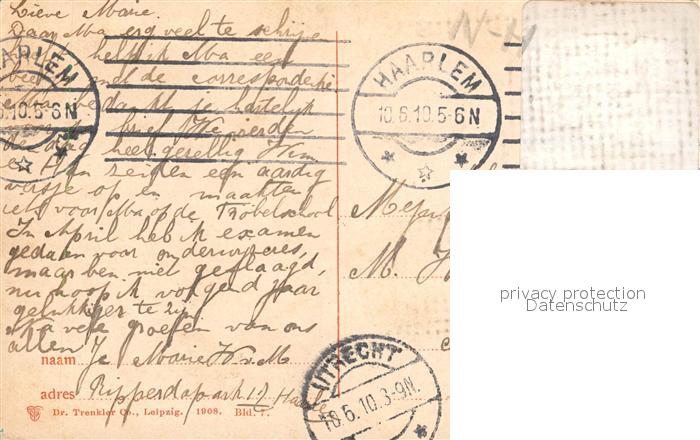 Lieve Marie.
Daar Ma erg veel te schrijven
help ik Ma een
met de correspondentie
je hartelijk
brief. We vierden
de dag heel gezellig Wim
en zeiden een aardig
versje op en maakten
iets voor Ma op de Fröbelschool
In April heb ik examen
gedaan voor onderwijzeres,
maar ben niet geslaagd,
nu hoop ik volgend jaar
gelukkiger te zijn
vele groeten van ons
allen Je Marie W. v. M
naam
adres Ripperdapark 17 Haarlem
Dr. Trenkler Co., Leipzig. 1908. Bld. 7.
HAARLEM
10.6.10.5-6N
N-H
HAARLEM
10.6.10.5-6N
Mej
M.
UTRECHT
10.6.10.3-9N.
privacy protection
Datenschutz